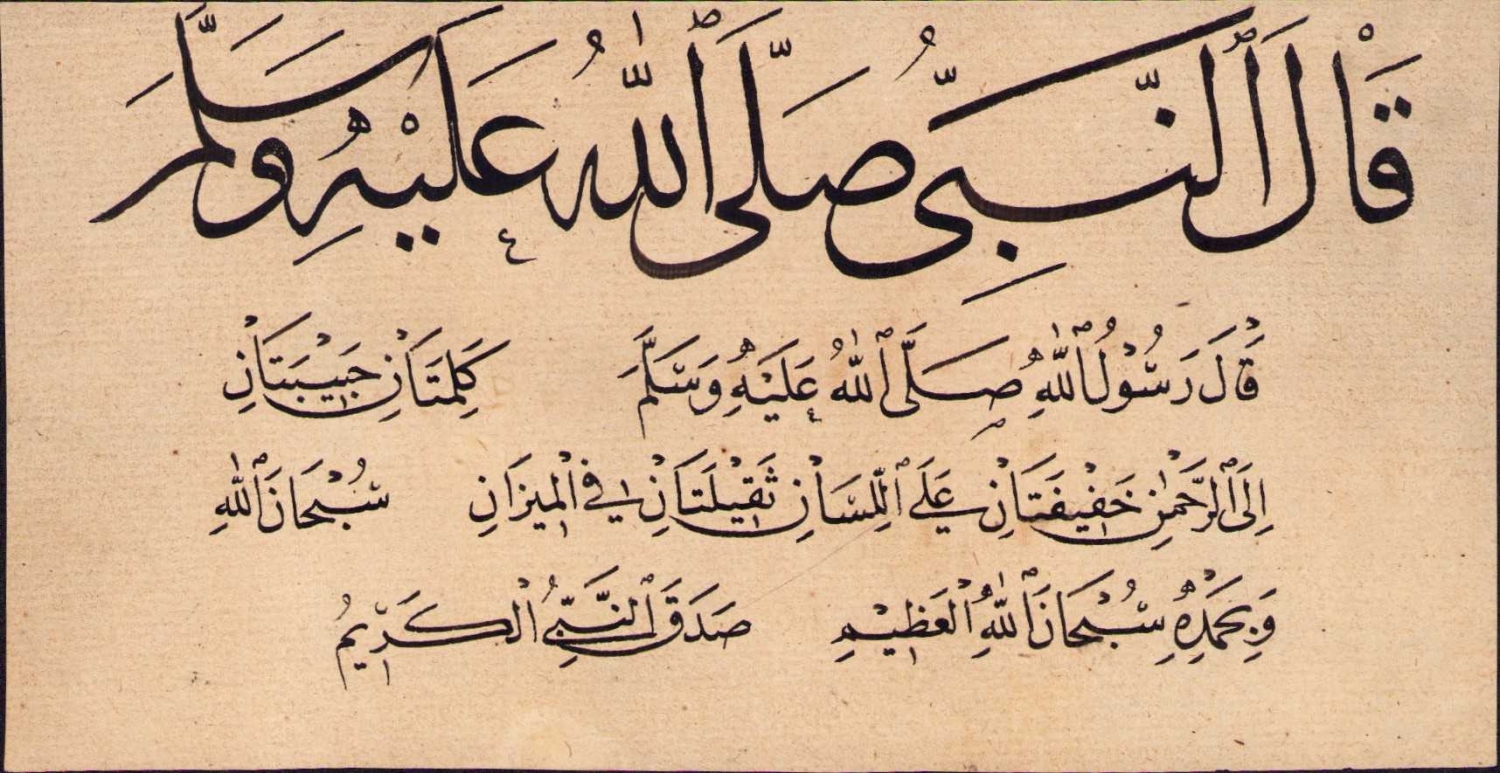 قَالَ ٱلنَّبِيُّ صَلَّى ٱللّٰهُ عَلَيْهِ وَسَلَّمَ
قَالَ رَسُوْلُ ٱللّٰهِ صَلَّى ٱللّٰهُ عَلَيْهِ وَسَلَّمَ كَلِمَتَانِ حَبِيْبَتَانِ
اِلَى ٱلرَّحْمٰنِ خَفِيْفَتَانِ عَلَى ٱللِّسَانِ ثَقِيْلَتَانِ فِي الْمِيْزَانِ سُبْحَانَ ٱللّٰهِ
وَبِحَمْدِهِ سُبْحَانَ ٱللّٰهِ الْعَظِيْمِ صَدَقَ ٱلنَّبِيُّ الْكَرِيْمُ